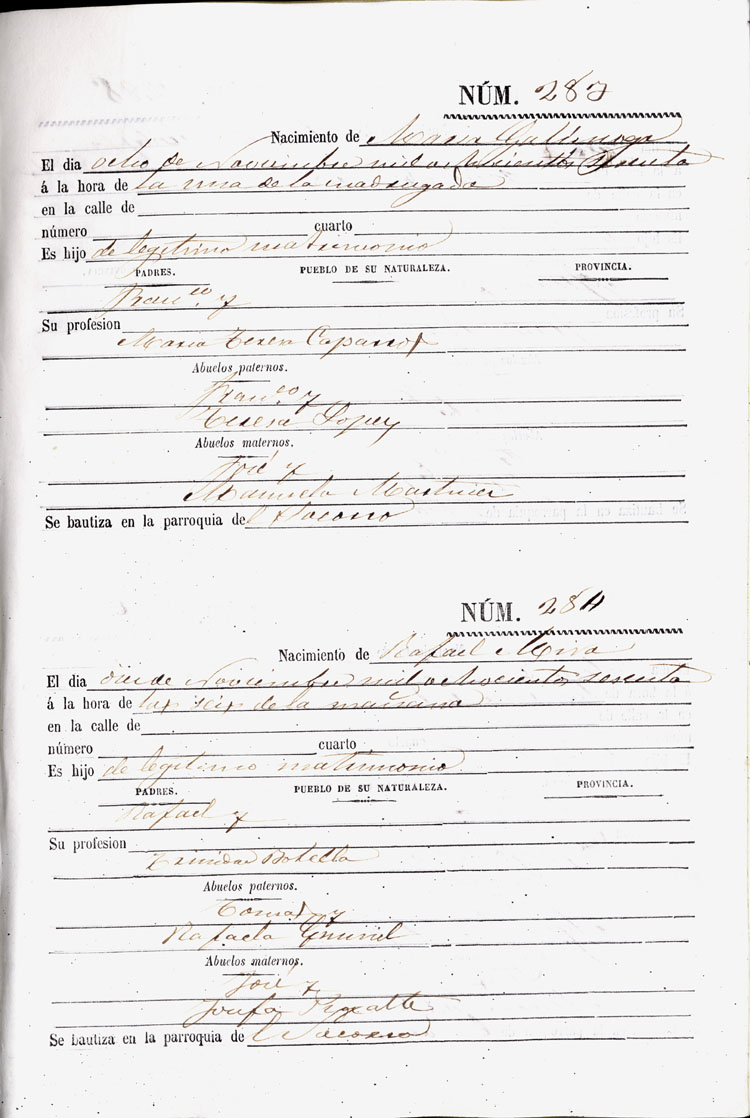 NÚM. 283
Nacimiento de Maria
El dia ocho de Noviembre mil ochocientos sesenta
á la hora de la una de la madrugada
en la calle de
número cuarto
Es hijo de legitimo matrimonio
PADRES. PUEBLO DE SU NATURALEZA. PROVINCIA.
Fran.co y
Su profesion
Maria Teresa Caparros
Abuelos paternos.
Fran.co y
Teresa Lopez
Abuelos maternos.
José y
Manuela Martinez
Se bautiza en la parroquia del Socorro
NÚM. 284
Nacimiento de Rafael Mira
El dia de Noviembre mil ochocientos sesenta
á la hora de las seis de la mañana
en la calle de
número cuarto
Es hijo de legitimo matrimonio
PADRES. PUEBLO DE SU NATURALEZA. PROVINCIA.
Rafael y
Su profesion
Trinidad Botella
Abuelos paternos.
Tomas y
Rafaela
Abuelos maternos.
José y
Josefa
Se bautiza en la parroquia de l Socorro